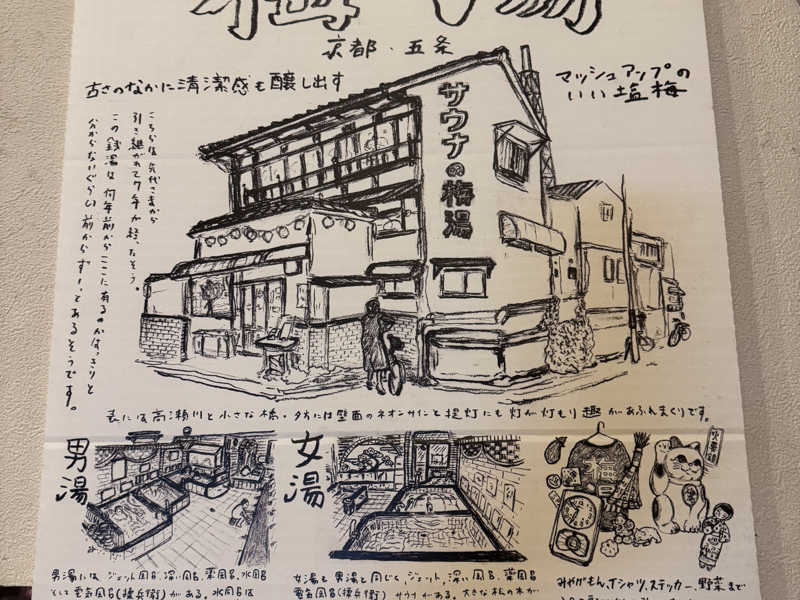 梅湯
京都・五条
古さのなかに清潔感も醸し出す
マッシュアップの
いい塩梅
サウナの梅湯
こちらは先代さまから
引き継がれて7年が経ったそう。
この銭湯は何年前からここに有るのかはっきりと
分からないぐらい前からずーっとあるそうです。
表には高瀬川と小さな橋。夕方には壁面のネオンサインと提灯にも灯が灯もり趣があふれまくりです。
男湯
女湯
梅
男湯には、ジェット風呂、深い風呂、薬風呂、水風呂
そして電気風呂(揉兵衛)がある。水風呂は
女湯も男湯と同じく、ジェット、深い風呂、薬風呂
電気風呂(揉兵衛) サウナがある。大きな松の木が
みやげもん、Tシャツ、ステッカー、野菜まで